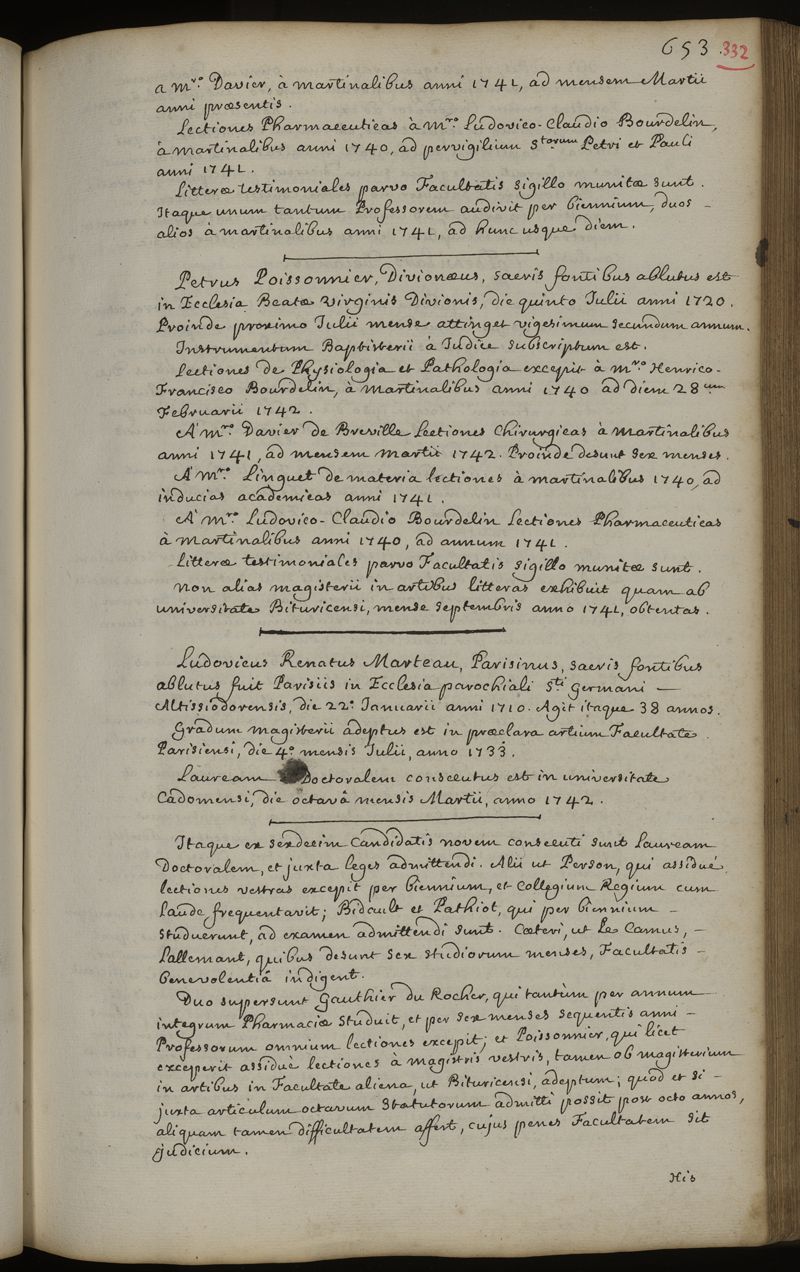 653 332
a mro. Davier, à martinalibus anni 1741, ad mensem Martii
anni præsentis.
Lectiones Pharmaceuticas à mro. Ludovico-Claudio Bourdelin,
à martinalibus anni 1740, ad pervigilium Storum Petri et Pauli
anni 1741.
Litteræ testimoniales parvo Facultatis sigillo munitæ sunt.
Itaque unum tantum Professorem audivit per biennium, duos -
alios à martinalibus anni 1741, ad hunc usque diem.
Petrus Poissonnier, Divionæus, sacris fontibus ablutus est
in Ecclesia Beatæ Virginis Divionis, die quinto Julii anni 1720.
Proinde proximo Julii mense attinget vigesimum secundum annum.
Instrumentum Baptisterii à Judice subscriptum est.
Lectiones de Physiologia et Pathologia excepit à mro. Henrico-
Francisco Bourdelin, à martinalibus anni 1740 ad diem 28um
Februarii 1742.
A mro. Davier de Breville Lectiones Chirurgicas à martinalibus
anni 1741, ad mensem martii 1742. Proinde desunt sex menses.
A mro. Linguet de materia lectiones à martinalibus 1740, ad
inducias academicas anni 1741.
A mro. Ludovico-Claudio Bourdelin Lectiones Pharmaceuticas
à martinalibus anni 1740, ad annum 1741.
Litteræ testimoniales parvo Facultatis sigillo munitæ sunt.
non alias magisterii in artibus litteras exhibuit quam ab
universitate Bituricensi, mense septembris anno 1741, obtentas.
Ludovicus Renatus Marteau, Parisinus, sacris fontibus
ablutus fuit Parisiis in Ecclesia parochiali Sti Germani —
Altissiodorensis, die 22a. Januarii anni 1710. Agit itaque 38 annos.
Gradum magisterii adeptus est in præclara artium Facultate
Parisiensi, die 4o. mensis Julii, anno 1733.
Lauream Doctoralem consecutus est in universitate
Cadomensi, die octavâ mensis Martii, anno 1742.
Itaque ex sexdecim Candidatis novem consecuti sunt Lauream
Doctoralem, et juxta leges admittendi. Alii ut Person, qui assiduè
lectiones vestras excepit per biennium, et Collegium Regium cum
Laude frequentavit; Bidault et Pathiot, qui per biennium -
studuerunt, ad examen admittendi sunt. Cæteri, ut Le Camus, -
Lallemant, quibus desunt sex studiorum menses, Facultatis -
benevolentiâ indigent.
Duo supersunt Gauthier du Rocher, qui tantùm per annum
integrum Pharmaciæ studuit, et per sex menses sequentis anni -
Professorum omnium lectiones excepit; et Poissonnier, qui licet
exceperit assiduè lectiones à magistris vestris, tamen ob magisterium
in artibus in Facultate aliena, ut Bituricensi, adeptum; quod et si -
juxta articulum octavum Statutorum admitti possit post octo annos,
aliquam tamen difficultatem affert, cujus penes Facultatem sit
judicium.
His